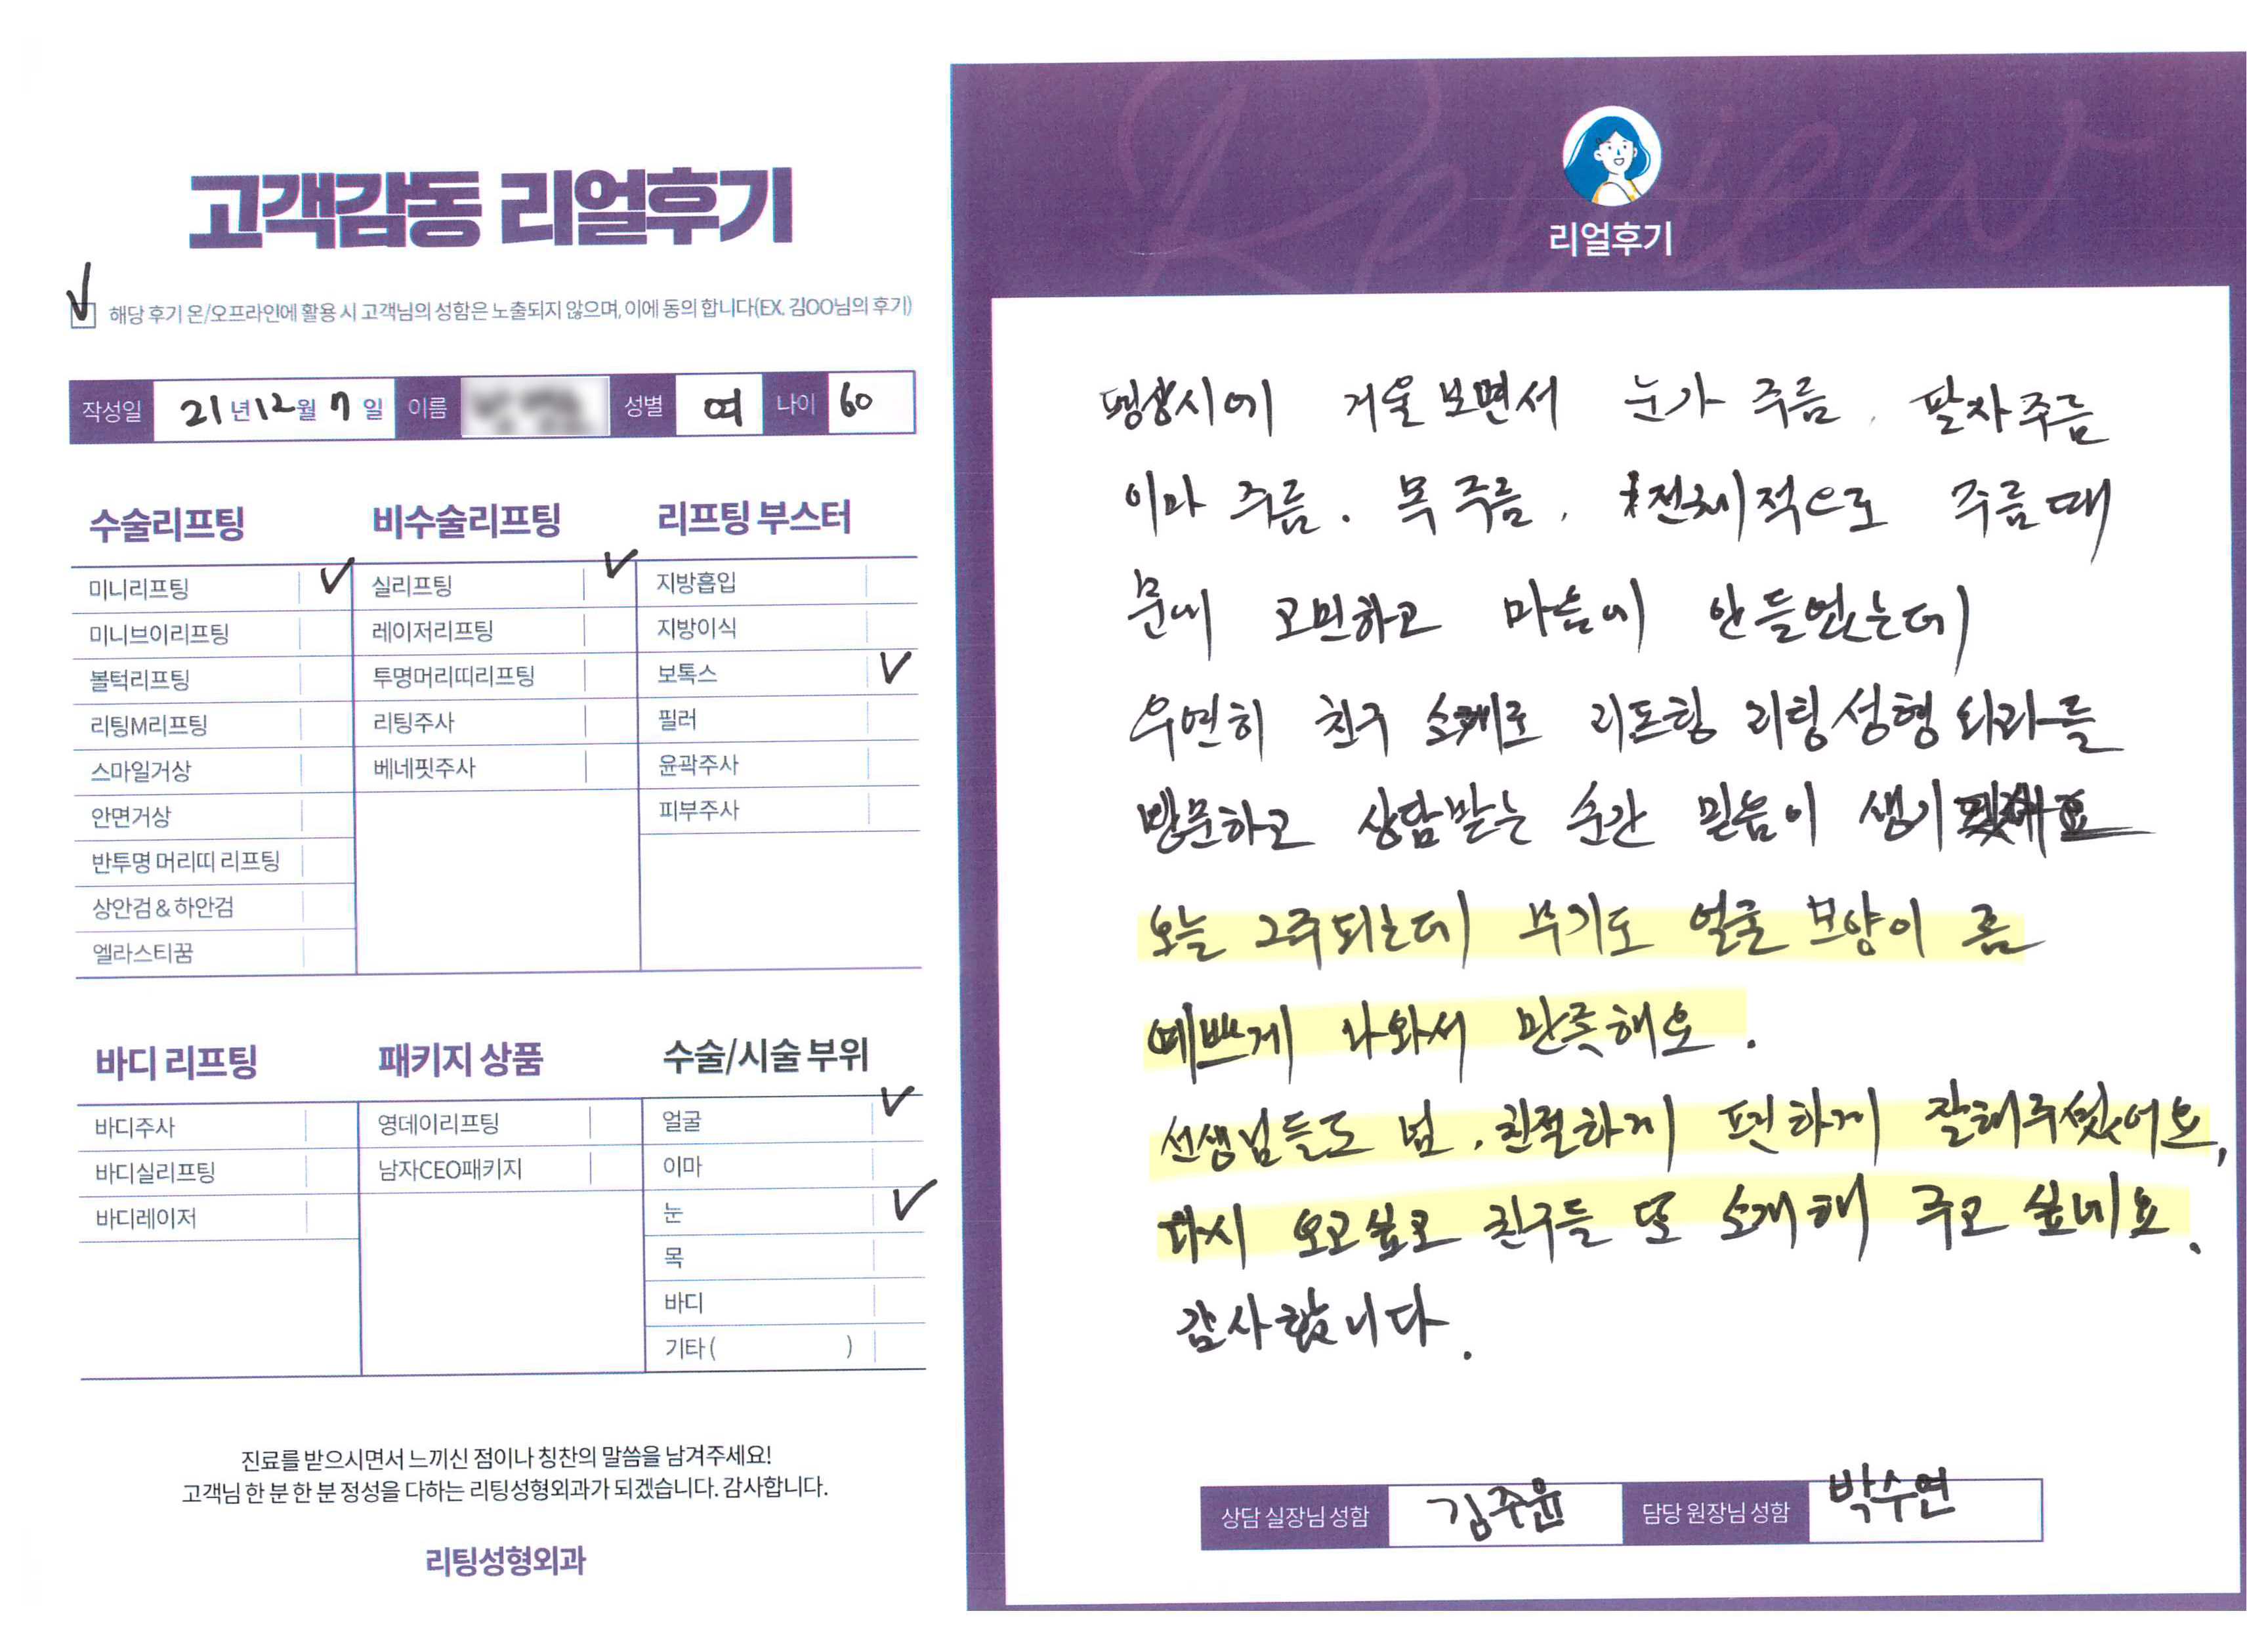 고객감동 리얼후기
✓ 해당 후기 온/오프라인에 활용 시 고객님의 성함은 노출되지 않으며, 이에 동의 합니다(EX. 김OO님의 후기)
작성일 21년 12월 7일 이름 성별 여 나이 60
수술리프팅
미니리프팅 ✓
미니브이리프팅
볼턱리프팅
리팅M리프팅
스마일거상
안면거상
반투명 머리띠 리프팅
상안검 & 하안검
엘라스티꿈
비수술리프팅
실리프팅 ✓
레이저리프팅
투명머리띠리프팅
리팅주사
베네핏주사
리프팅 부스터
지방흡입
지방이식
보톡스 ✓
필러
윤곽주사
피부주사
바디 리프팅
바디주사
바디실리프팅
바디레이저
패키지 상품
영데이리프팅
남자CEO패키지
수술/시술 부위
얼굴 ✓
이마
눈 ✓
목
바디
기타 ( )
진료를 받으시면서 느끼신 점이나 칭찬의 말씀을 남겨주세요!
고객님 한 분 한 분 정성을 다하는 리팅성형외과가 되겠습니다. 감사합니다.
리팅성형외과
Review
리얼후기
평상시에 거울 보면서 눈가 주름, 팔자주름
이마 주름. 목 주름, 전체적으로 주름 때
문에 고민하고 마음에 안들었는데
우연히 친구 소개로 리프팅 리팅성형외과를
방문하고 상담받는 순간 믿음이 생기
오늘 2주되는데 부기도 얼굴 모양이 좀
예쁘게 나와서 만족해요.
선생님들도 넘, 친절하게 편하게 잘해주셨어요,
다시 오고싶고 친구들 덜 소개해 주고 싶네요.
감사합니다.
상담 실장님 성함 김주윤 담당 원장님 성함 박수연